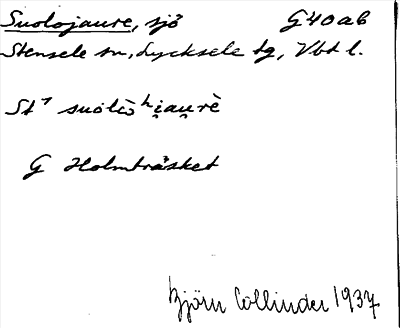 Suolojaure, sjö G40ab
Stensele sn, Lycksele tg, Vbt l.
St⁷ suolo ʰi̯au̯rè
G Holmträsket
Björn Collinder 1937